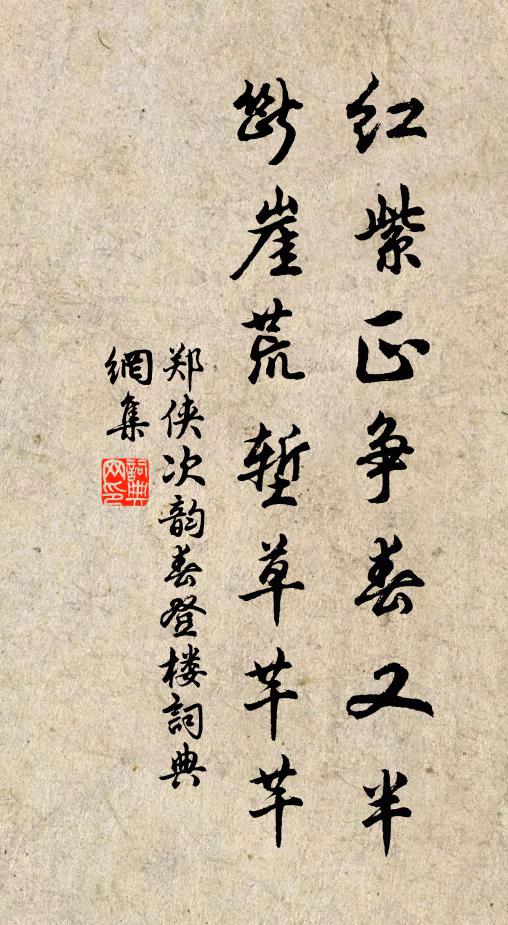 红紫正争春又半
断崖荒堑草芊芊
郑侠次韵春登楼詞典
網集
詞典
网印